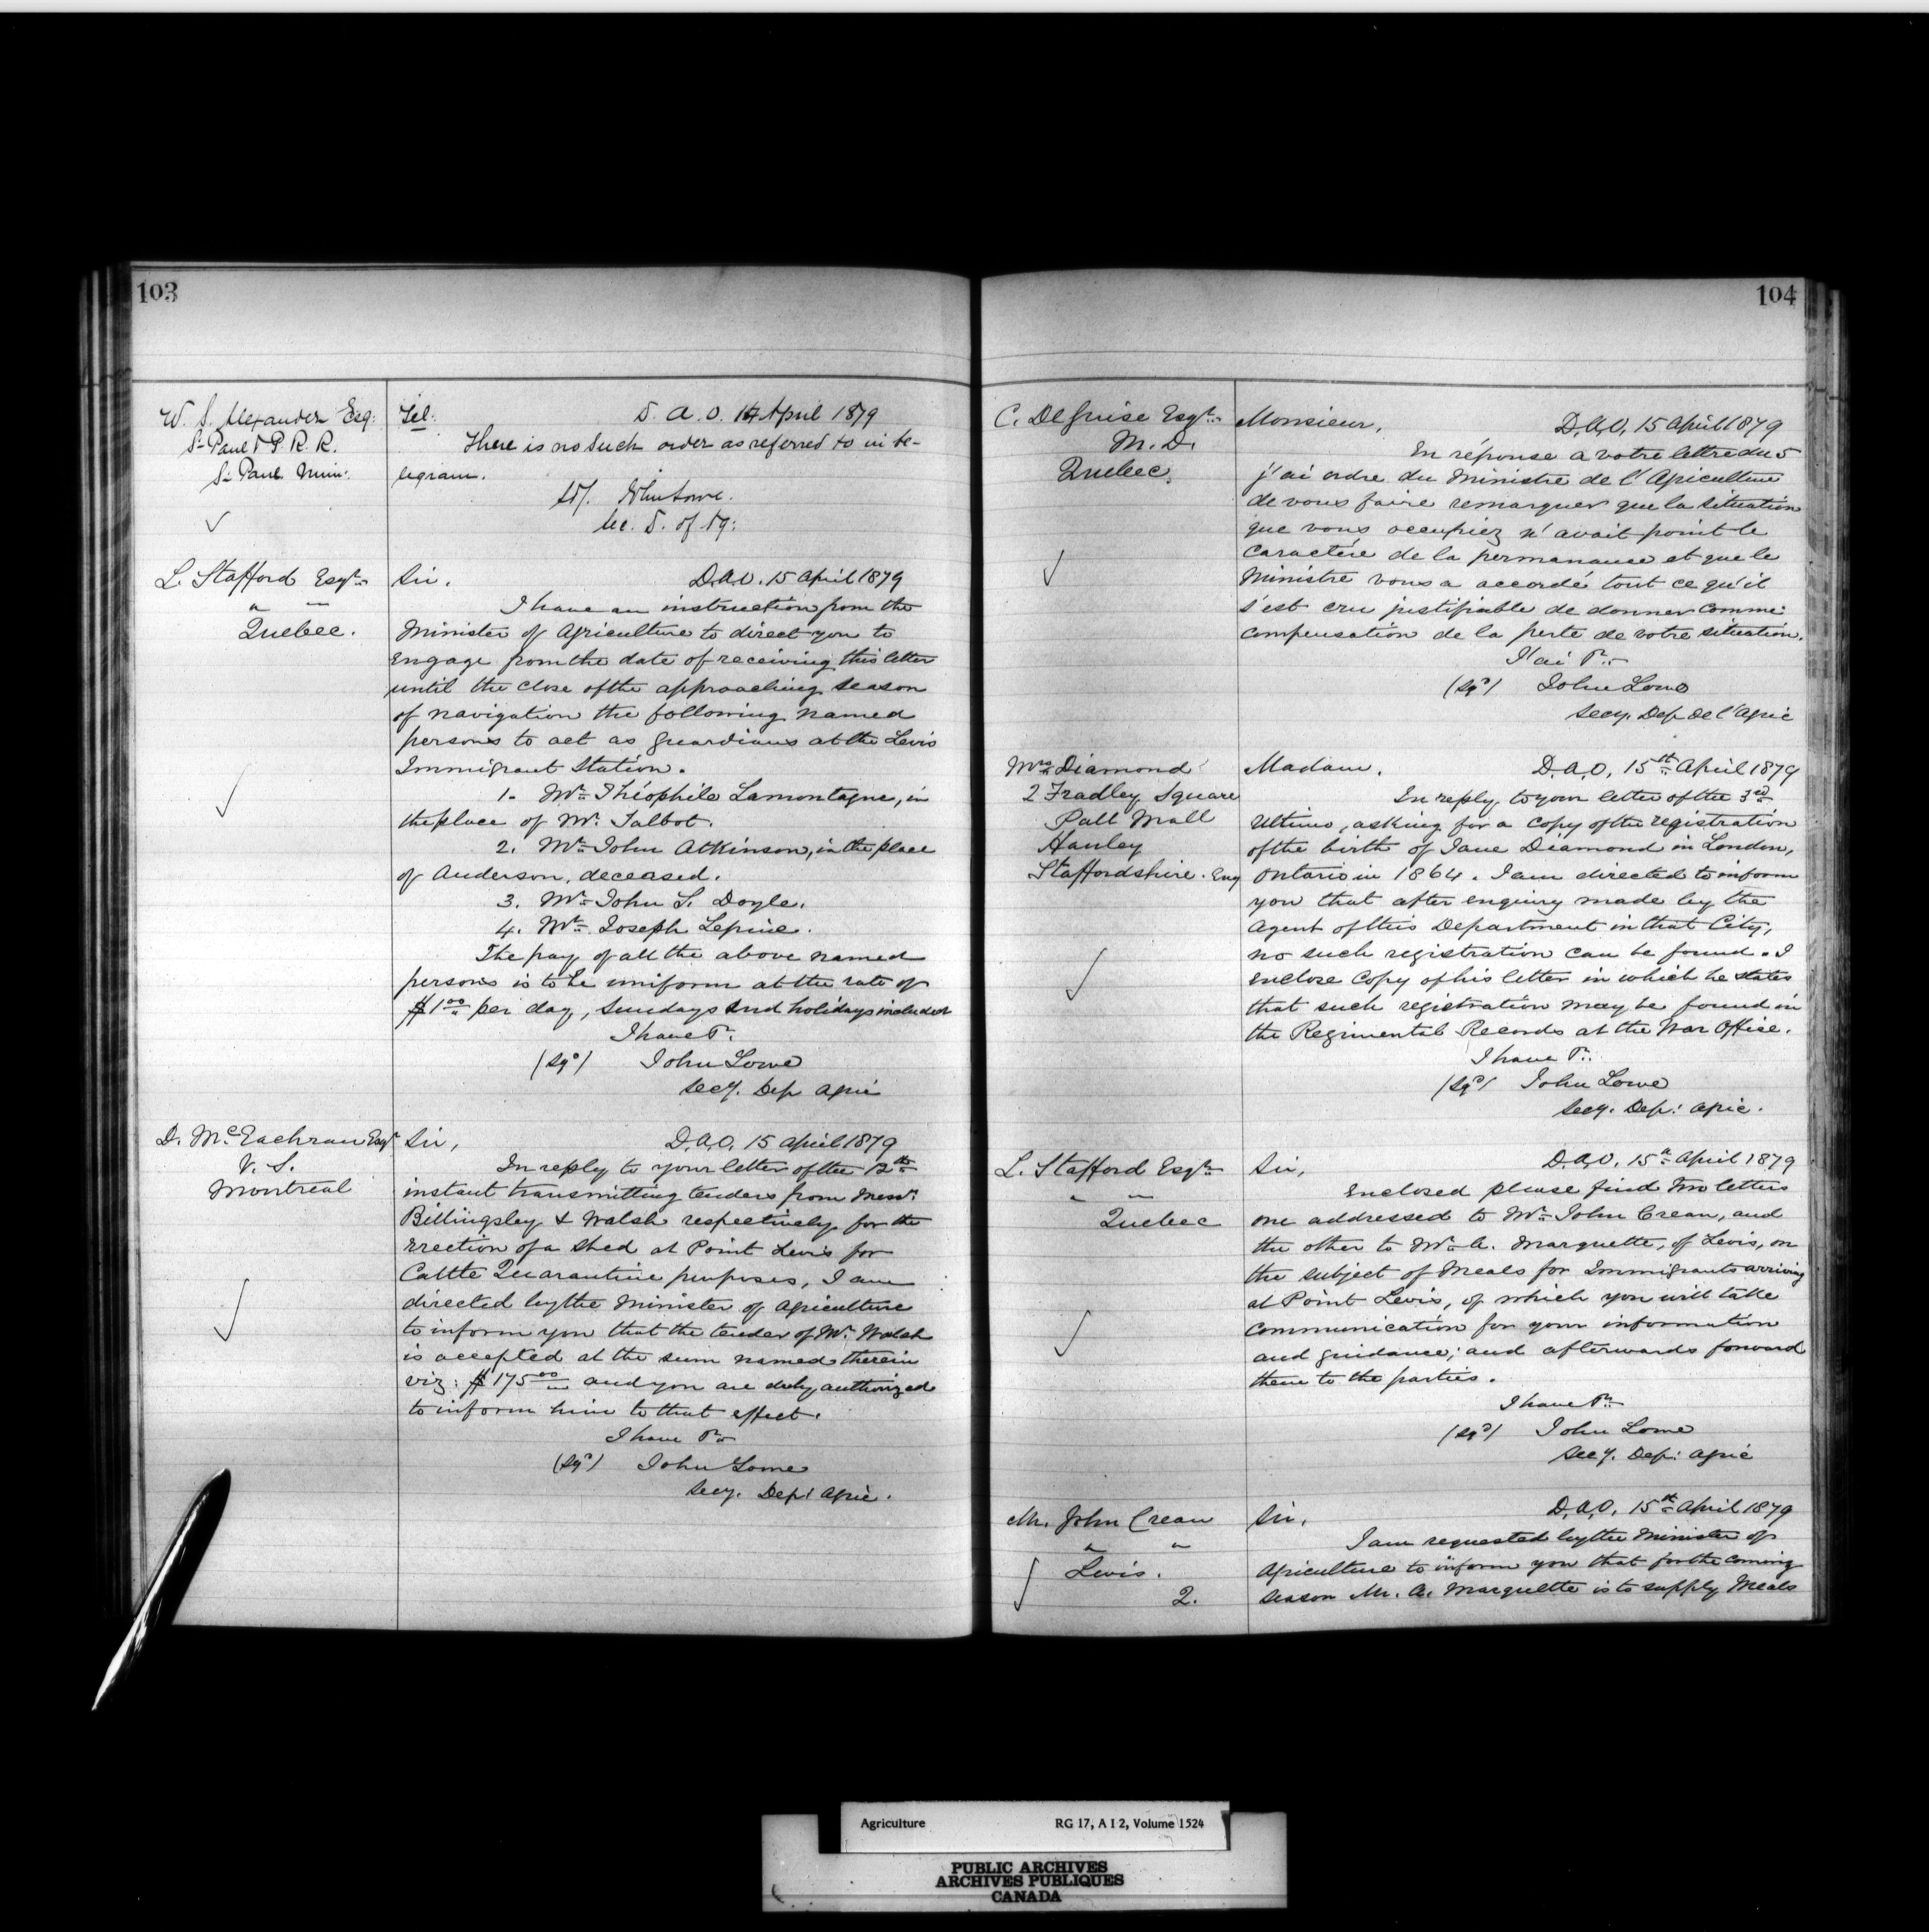 103
W. S. Alexander Esq:
St Paul & P. R. R.
St Paul Minn:
Tel:
D. A. O. 14 April 1879
There is no such order as referred to in te-
legram.
John Lowe.
Sec. D. of Ag:
L. Stafford Esqre
" "
Quebec.
Sir.
D.A.O. 15 April 1879
I have an instruction from the
Minister of Agriculture to direct you to
Engage from the date of receiving this letter
until the close of the approaching season
of navigation the following named
persons to act as guardians at the Levis
Immigrant Station.
1. Mr. Théophile Lamontagne, in
the place of Mr. Talbot.
2. Mr. John Atkinson, in the place
of Anderson, deceased.
3. Mr. John S. Doyle.
4. Mr. Joseph Lepine.
The pay of all the above named
persons is to be uniform at the rate of
$1.00 per day, Sundays and holidays included
I have &c.
(sgd) John Lowe
Secy. Dep Agric
D. McEachran Esqr
V. S.
Montreal
Sir,
D.A.O. 15 April 1879
In reply to your letter of the 12th
instant transmitting tenders from Messrs
Billingsley & Walsh respectively for the
erection of a shed at Point Levis for
Cattle Quarantine purposes, I am
directed by the Minister of Agriculture
to inform you that the tender of Mr. Walsh
is accepted at the sum named therein
viz: $175.00 and you are duly authorized
to inform him to that effect.
I have &c
(sgd) John Lowe
Secy. Dept Agric.
104
C. DeGuise Esqre
M. D.
Quebec.
Monsieur,
D.A.O. 15 April 1879
En réponse a votre lettre du 5
j'ai ordre du Ministre de l'Agriculture
de vous faire remarquer que la situation
que vous occupiez n'avait point le
Caractére de la permanance et que le
Ministre vous a accordé tout ce qu'il
s'est cru justifiable de donner comme
compensation de la perte de votre situation.
J'ai &c
(sgd) John Lowe
Secy. Dep. De l'Agric
Mrs. Diamond
2 Fradley Square
Pall Mall
Hanley
Staffordshire. Eng
Madam.
D.A.O. 15th April 1879
In reply to your letter of the 3rd
ultimo, asking for a copy of the registration
of the birth of Jane Diamond in London,
Ontario in 1864. I am directed to inform
you that after enquiry made by the
Agent of this Department in that City,
no such registration can be found. I
enclose Copy of his letter in which he states
that such registration may be found in
the Regimental Records at the War Office.
I have &c.
(sgd) John Lowe
Secy. Dep: Agric.
L. Stafford Esqre
" "
Quebec
Sir,
D.A.O. 15th April 1879
Enclosed please find two letters
one addressed to Mr. John Crean, and
the other to Mr. A. Marquette, of Levis, on
the subject of Meals for Immigrants arriving
at Point Levis, of which you will take
communication for your information
and guidance; and afterwards forward
them to the parties.
I have &c.
(sgd) John Lowe
Secy. Dep: Agric
Mr. John Crean
" "
Levis.
2.
Sir,
D.A.O. 15th April 1879
I am requested by the Minister of
Agriculture to inform you that for the coming
season Mr. A. Marquette is to supply Meals
Agriculture RG 17, A I 2, Volume 1524
PUBLIC ARCHIVES
ARCHIVES PUBLIQUES
CANADA